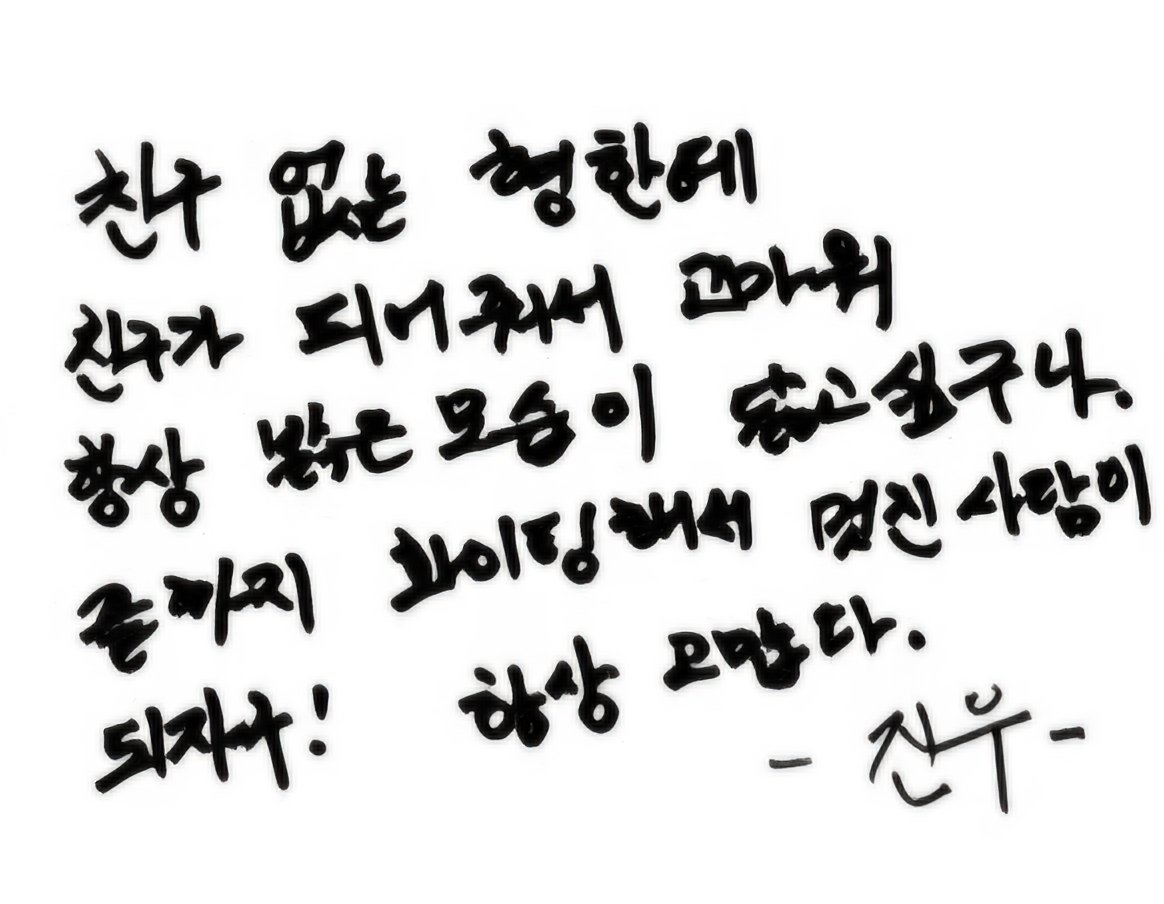 친구 없는 형한테
친구가 되어 줘서 고마워
항상 밝은 모습이 닮고 싶구나.
끝까지 화이팅해서 멋진 사람이
되자구! 항상 고맙다.
- 진우 -